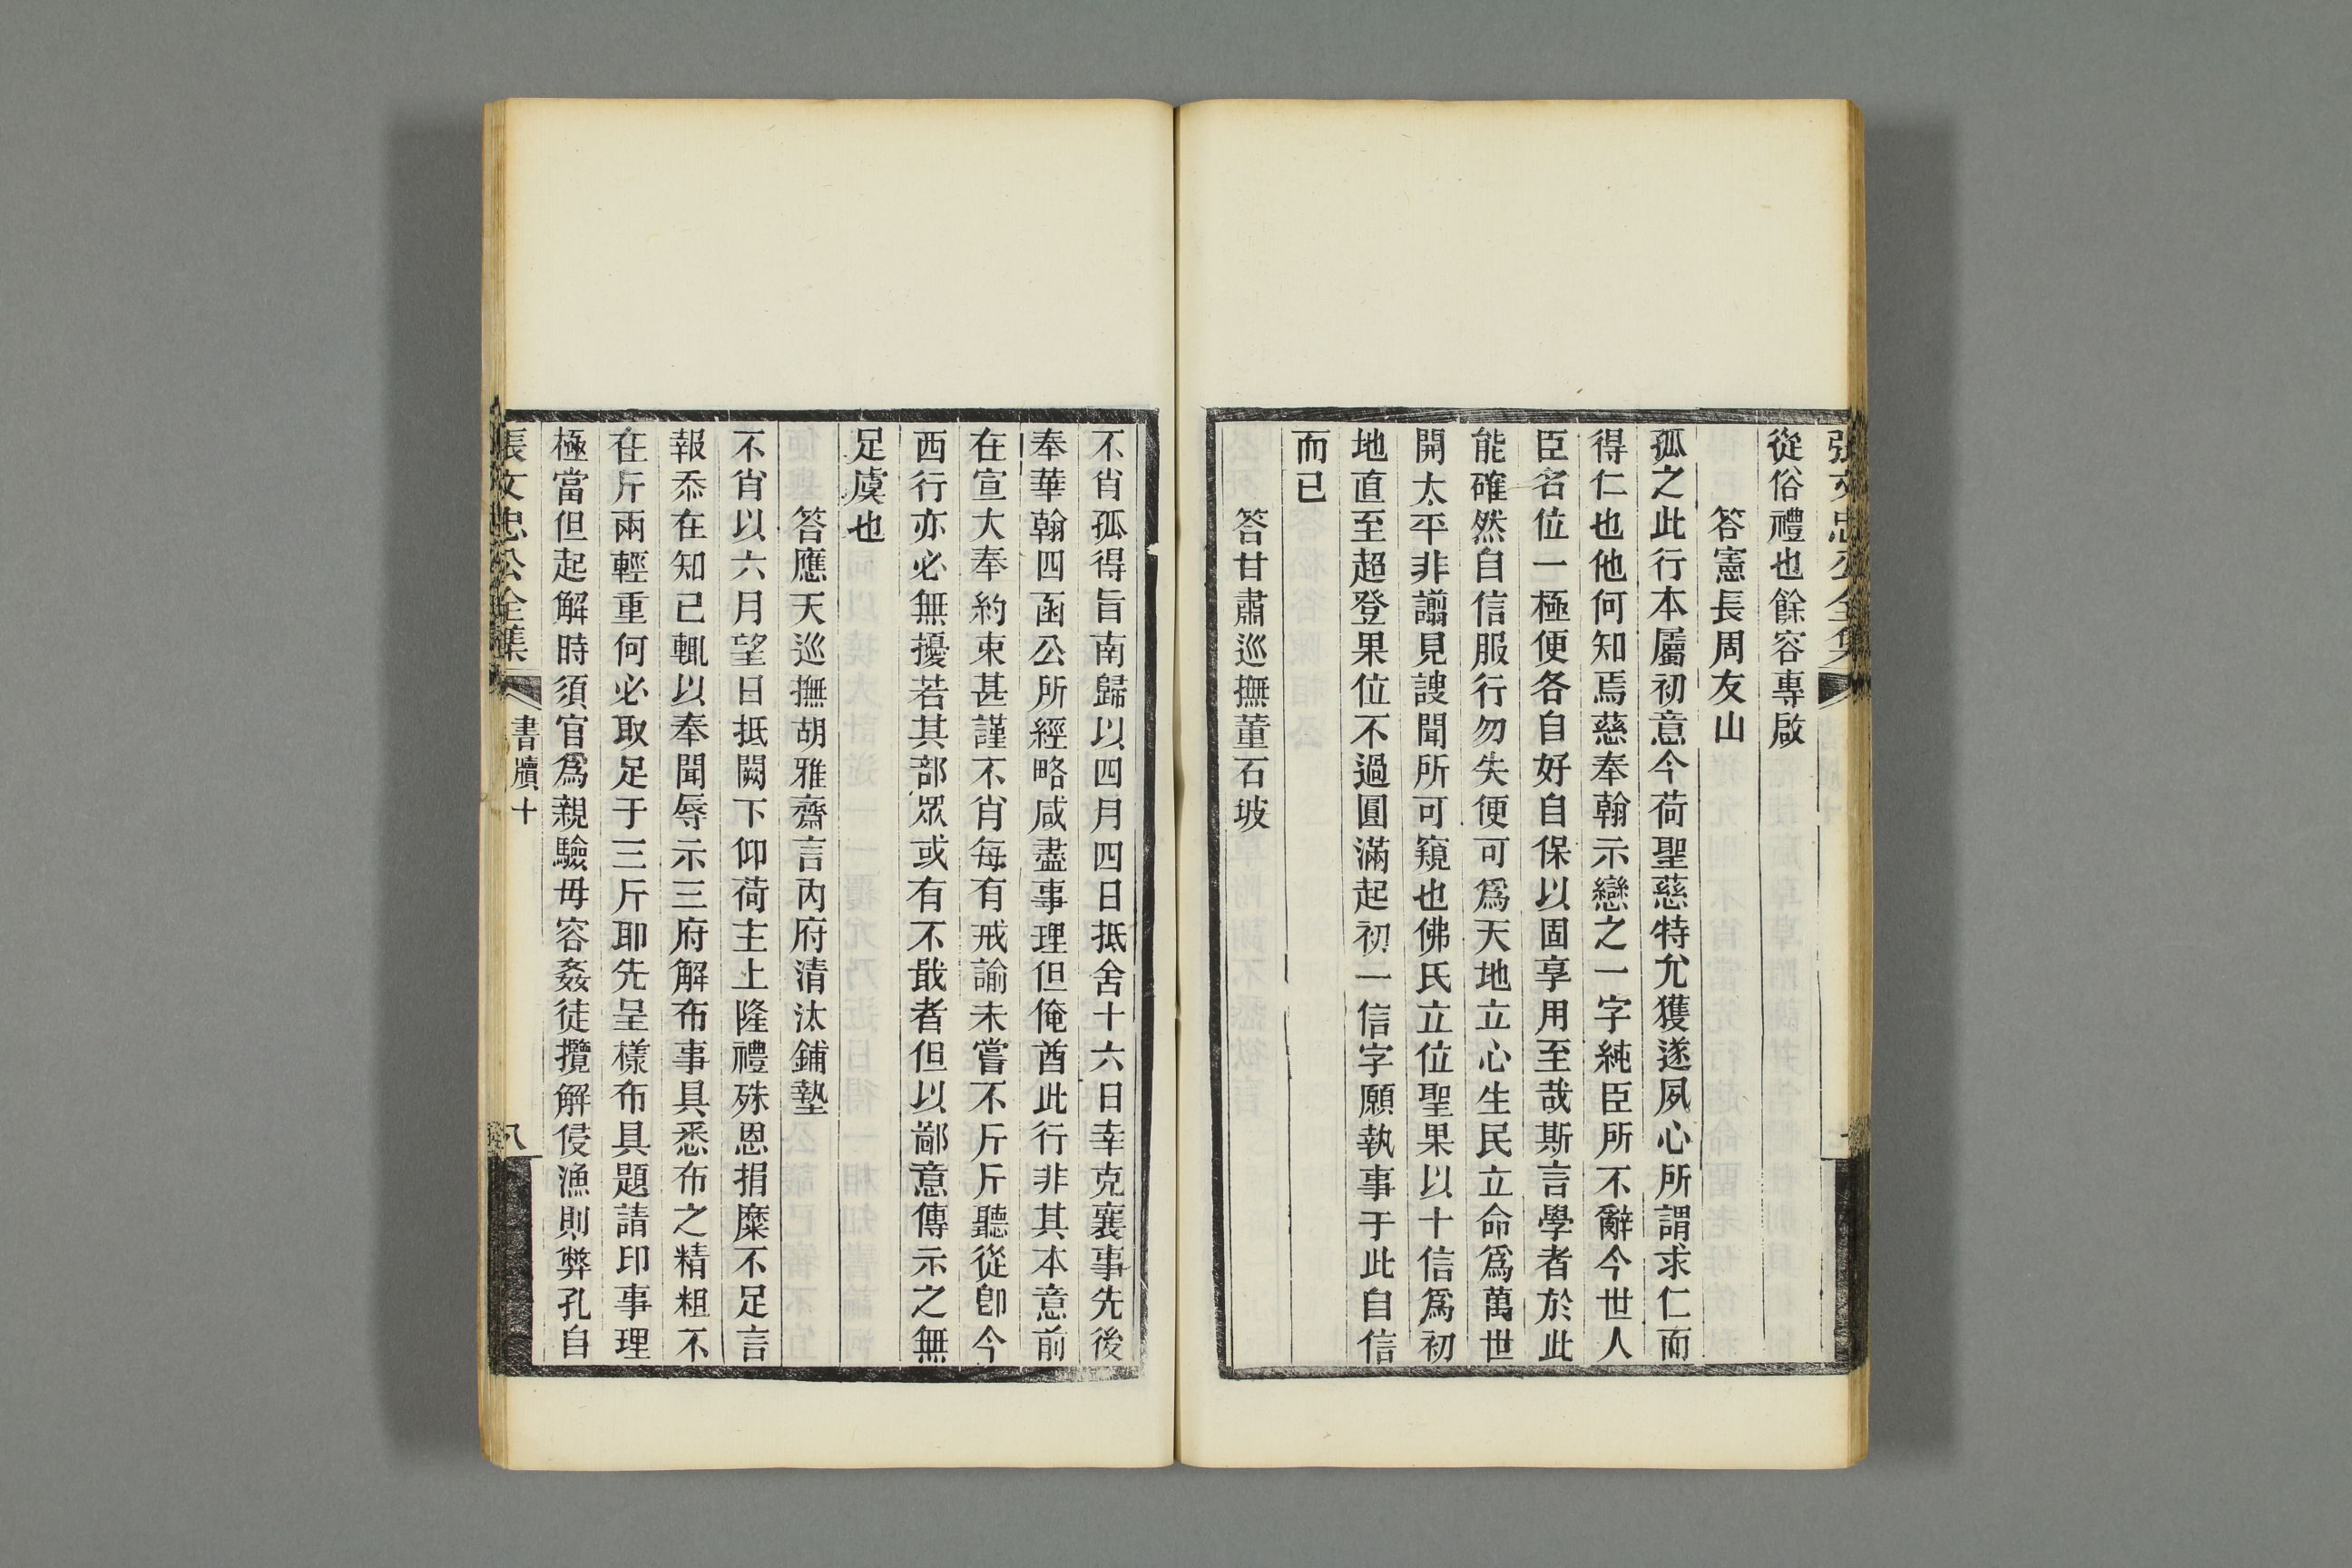 張文忠公全集
從俗禮也餘容專啟
答憲長周友山
孤之此行本屬初意今荷聖慈特允獲遂夙心所謂求仁而
得仁也他何知焉慈奉翰示戀之一字純臣所不辭今世人
臣名位一極便各自好自保以固享用至哉斯言學者於此
能確然自信服行勿失便可爲天地立心生民立命爲萬世
開太平非謭見謏聞所可窺也佛氏立位聖果以十信爲初
地直至超登果位不過圓滿起初一信字願執事于此自信
而已
答甘肅巡撫董石坡
不肖孤得旨南歸以四月四日抵舍十六日幸克襄事先後
奉華翰四函公所經略咸盡事理但俺酋此行非其本意前
在宣大奉約束甚謹不肖每有戒諭未嘗不斤斤聽從卽今
西行亦必無擾若其部眾或有不戢者但以鄙意傳示之無
足虞也
答應天巡撫胡雅齋言內府清汰鋪墊
不肖以六月望日抵闕下仰荷主上隆禮殊恩捐糜不足言
報忝在知己輒以奉聞辱示三府解布事具悉布之精粗不
在斤兩輕重何必取足于三斤耶先呈樣布具題請印事理
極當但起解時須官爲親驗毋容姦徒攬解侵漁則弊孔自
張文忠公全集 書牘十 八